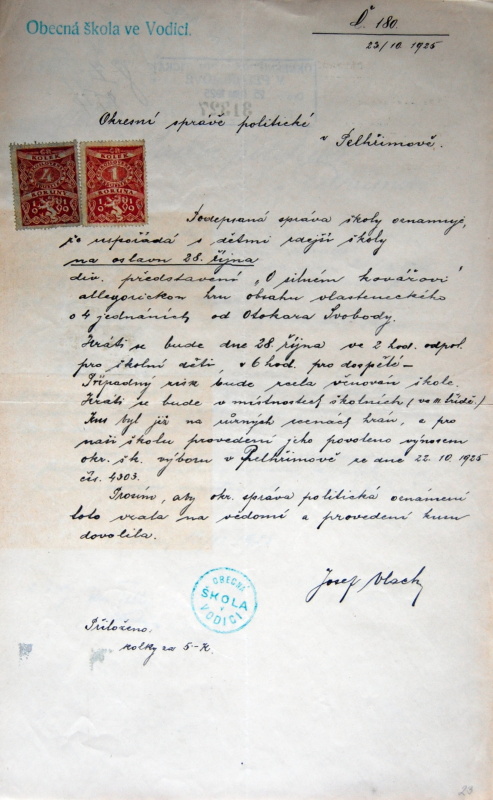 Obecná škola ve Vodici.
Č 180.
23/10. 1925
31327
Okresní správě politické
v Pelhřimově.
KOLEK
4
KORUNY
KOLEK
1
KORUNA
Podepsaná správa školy oznamuje,
že uspořádá s dětmi zdejší školy
na oslavu 28. října
div. představení „O silném kovářovi"
allegorickou hru obsahu vlasteneckého
o 4 jednáních od Otokara Svobody.
Hráti se bude dne 28. října ve 2 hod. odpol.
pro školní děti, v 6 hod. pro dospělé –
Případný zisk bude zcela věnován škole.
Hráti se bude v místnostech školních (ve II. třídě.)
Kus byl již na různých scenách hrán, a pro
naši školu provedení jeho povoleno výnosem
okr. šk. výboru v Pelhřimově ze dne 22. 10. 1925
čís. 4303.
Prosím, aby okr. správa politická oznámení
toto vzala na vědomí a provedení kusu
dovolila.
Josef Vlach
OBECNÁ
ŠKOLA
v
VODICI
Přiloženo,
kolky za 5 – K.
23